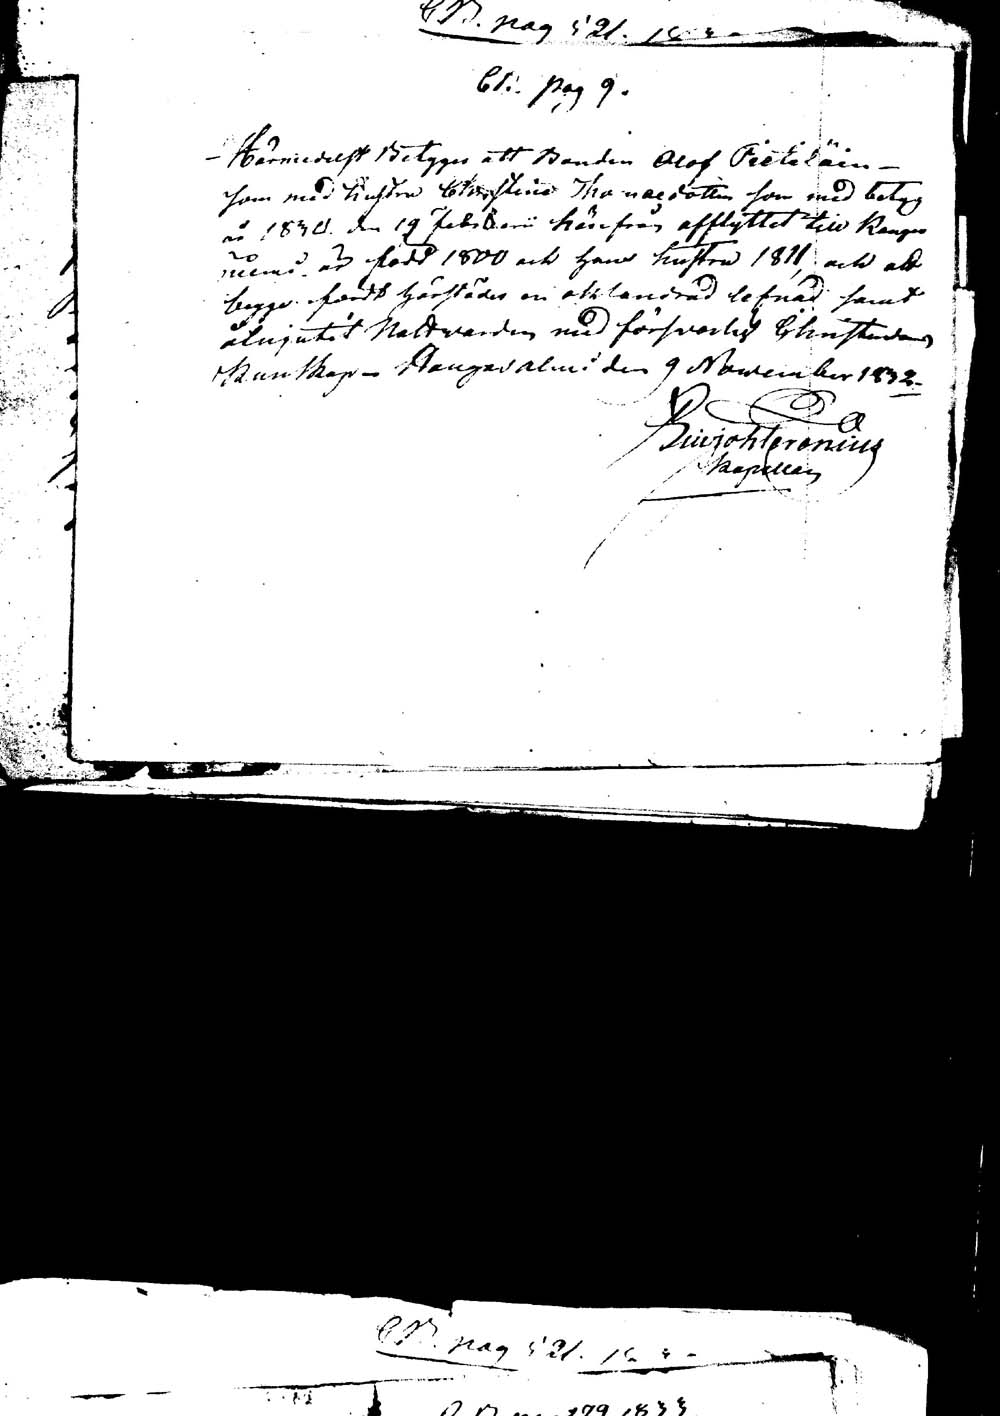 pag 521.
Ch: pag 9.
Härmedelst Betygges att Bonden Olof Pietiläin
som med hustru Christina Thomaedotter som med betyg
år 1830. den 19 Februarii härifrån afflyttet till Kangas
niemi. är född 1800 och hans hustru 1811, och att
begge fördt härstädes en oklandrad lefnad samt
åtnjutit Nattvarden med försvarlig Christendoms
Kunskap Haugasalmi den 9 November 1832.
Kapellan
pag 521.
179 1833